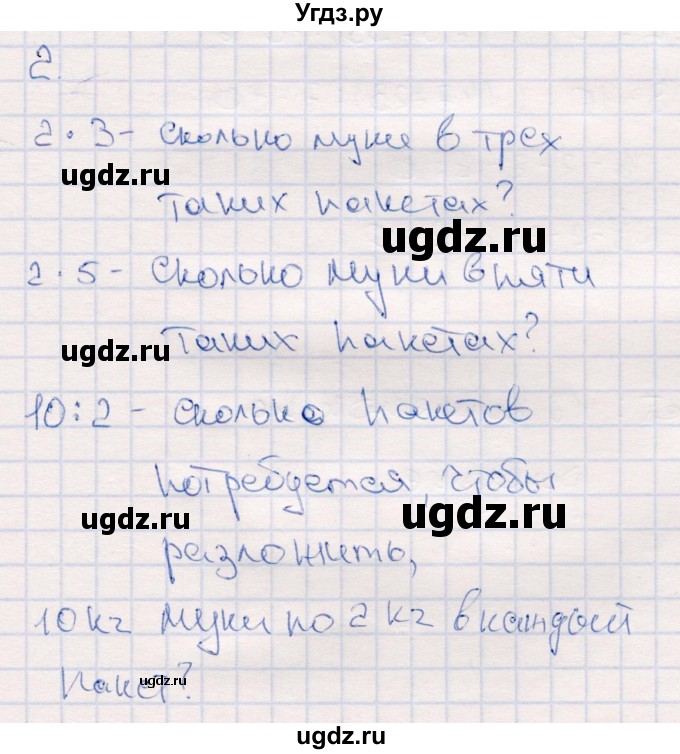 Угдз.ру
2.
2·3- сколько муки в трех
ugdz.ru
таких пакетах?
ugdz.ru
2·5- Сколько муки в пяти
ugdz.ru
таких пакетах?
10:2- сколько пакетов
потребуется, чтобы
ugdz.ru ugdz.ru
разложить,
10 кг муки по 2 кг в каждый
пакет?
ugdz.ru
ugdz.ru